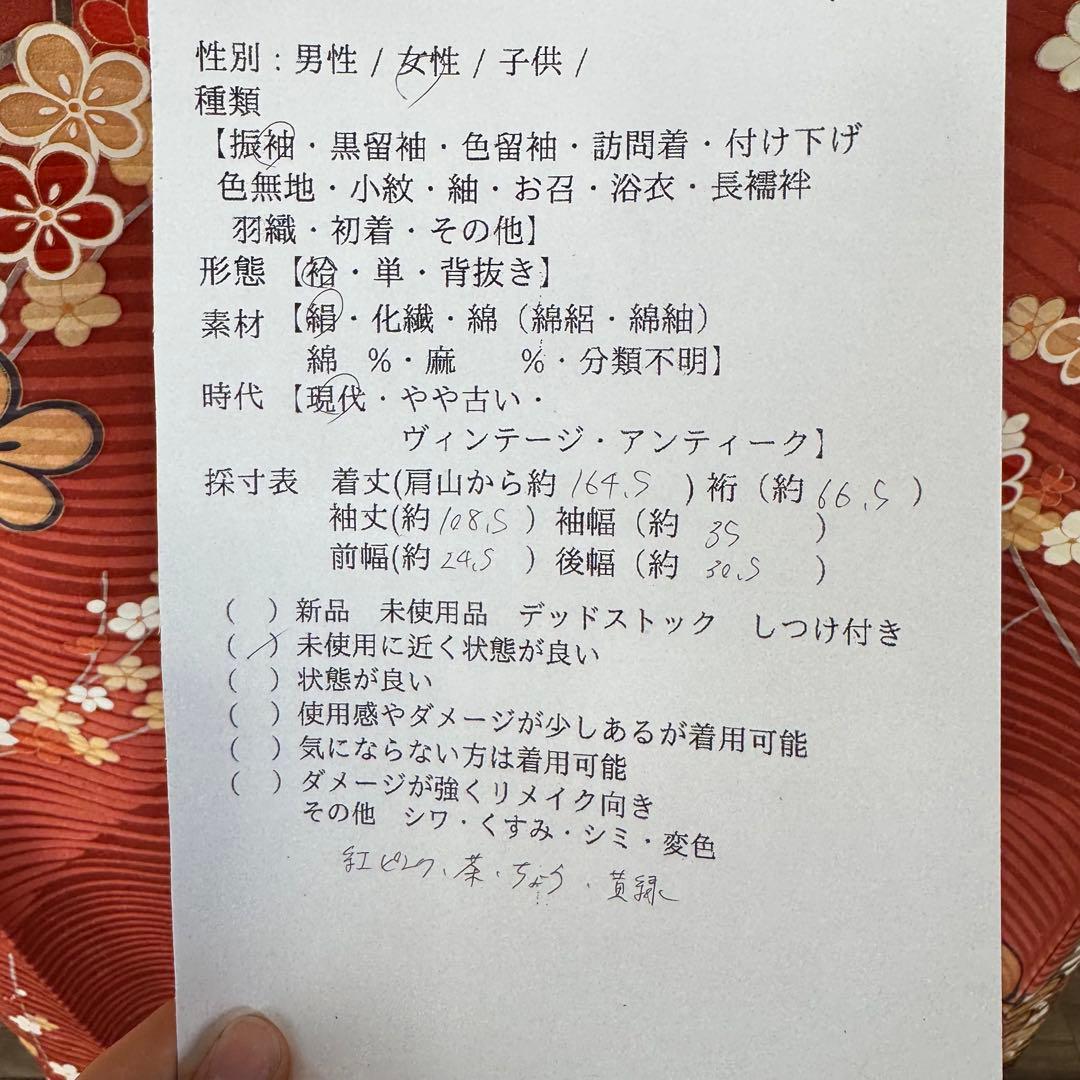 性別：男性 / 女性 / 子供 /
種類
【振袖・黒留袖・色留袖・訪問着・付け下げ
色無地・小紋・紬・お召・浴衣・長襦袢
羽織・初着・その他】
形態【袷・単・背抜き】
素材【絹・化繊・綿（綿絽・綿紬）
綿　%・麻　　%・分類不明】
時代【現代・やや古い・
ヴィンテージ・アンティーク】
採寸表　着丈(肩山から約 164.5 ) 裄（約 66.5 ）
袖丈(約 108.5 ）袖幅（約 35 ）
前幅(約 24.5 ）後幅（約 30.5 ）
（　）新品　未使用品　デッドストック　しつけ付き
（✓）未使用に近く状態が良い
（　）状態が良い
（　）使用感やダメージが少しあるが着用可能
（　）気にならない方は着用可能
（　）ダメージが強くリメイク向き
その他　シワ・くすみ・シミ・変色
紅ピンク、茶・ちょう・黄緑